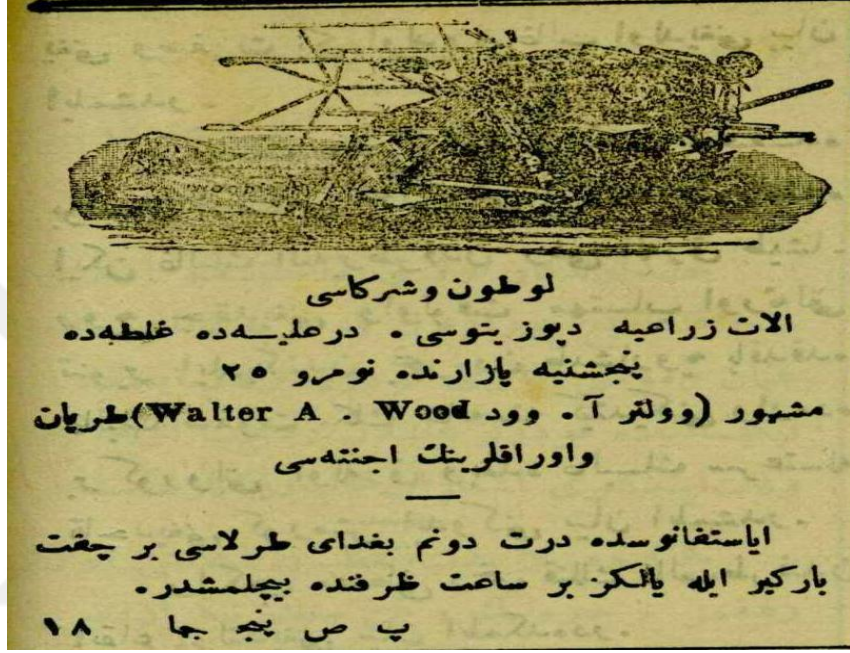 لوطون وشركاسی
الات زراعیه دپوزیتوسی . درعلیه‌ده غلطه‌ده
پنجشنبه پازارنده نومرو ٢٥
مشهور (وولتر آ . وود Walter A . Wood) طرپان
واوراقلرینك اجنته‌سی
ایاستفانوسده درت دونم بغدای طرلاسی بر چفت
بارکیر ایله یالکز بر ساعت ظرفنده بیچلمشدر .
پ ص پنج جما ١٨